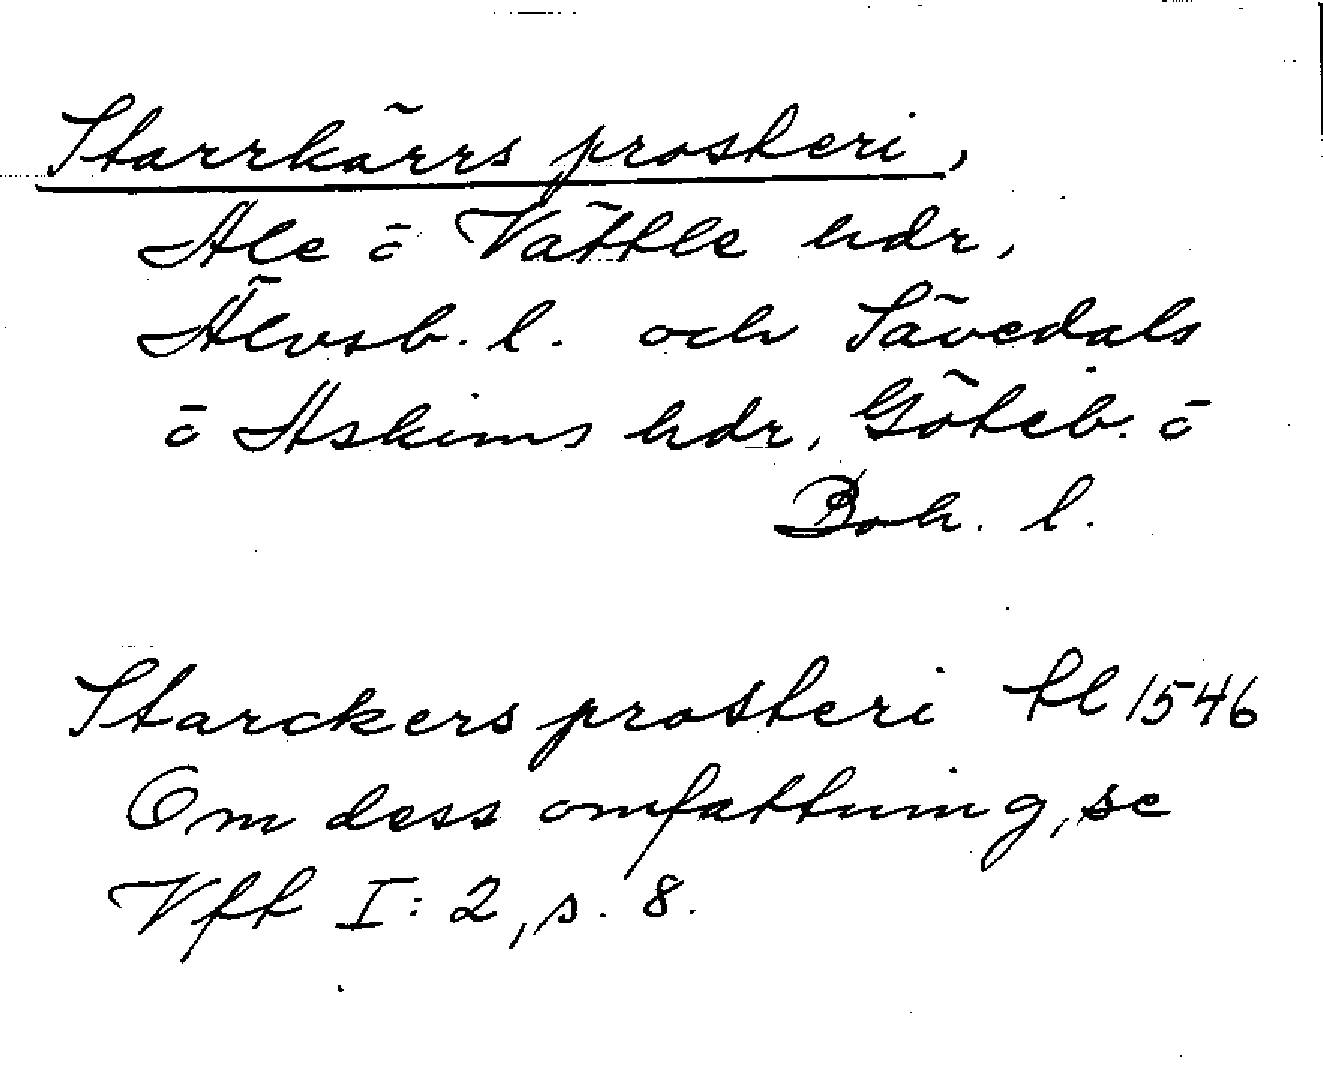 Starrkärrs prosteri,
Ale o Vättle hdr,
Älvsb. l. och Sävedals
o Askims hdr, Göteb. o
Boh. l.
Starckers prosteri tl 1546
Om dess omfattning, se
Vft I: 2, s. 8.